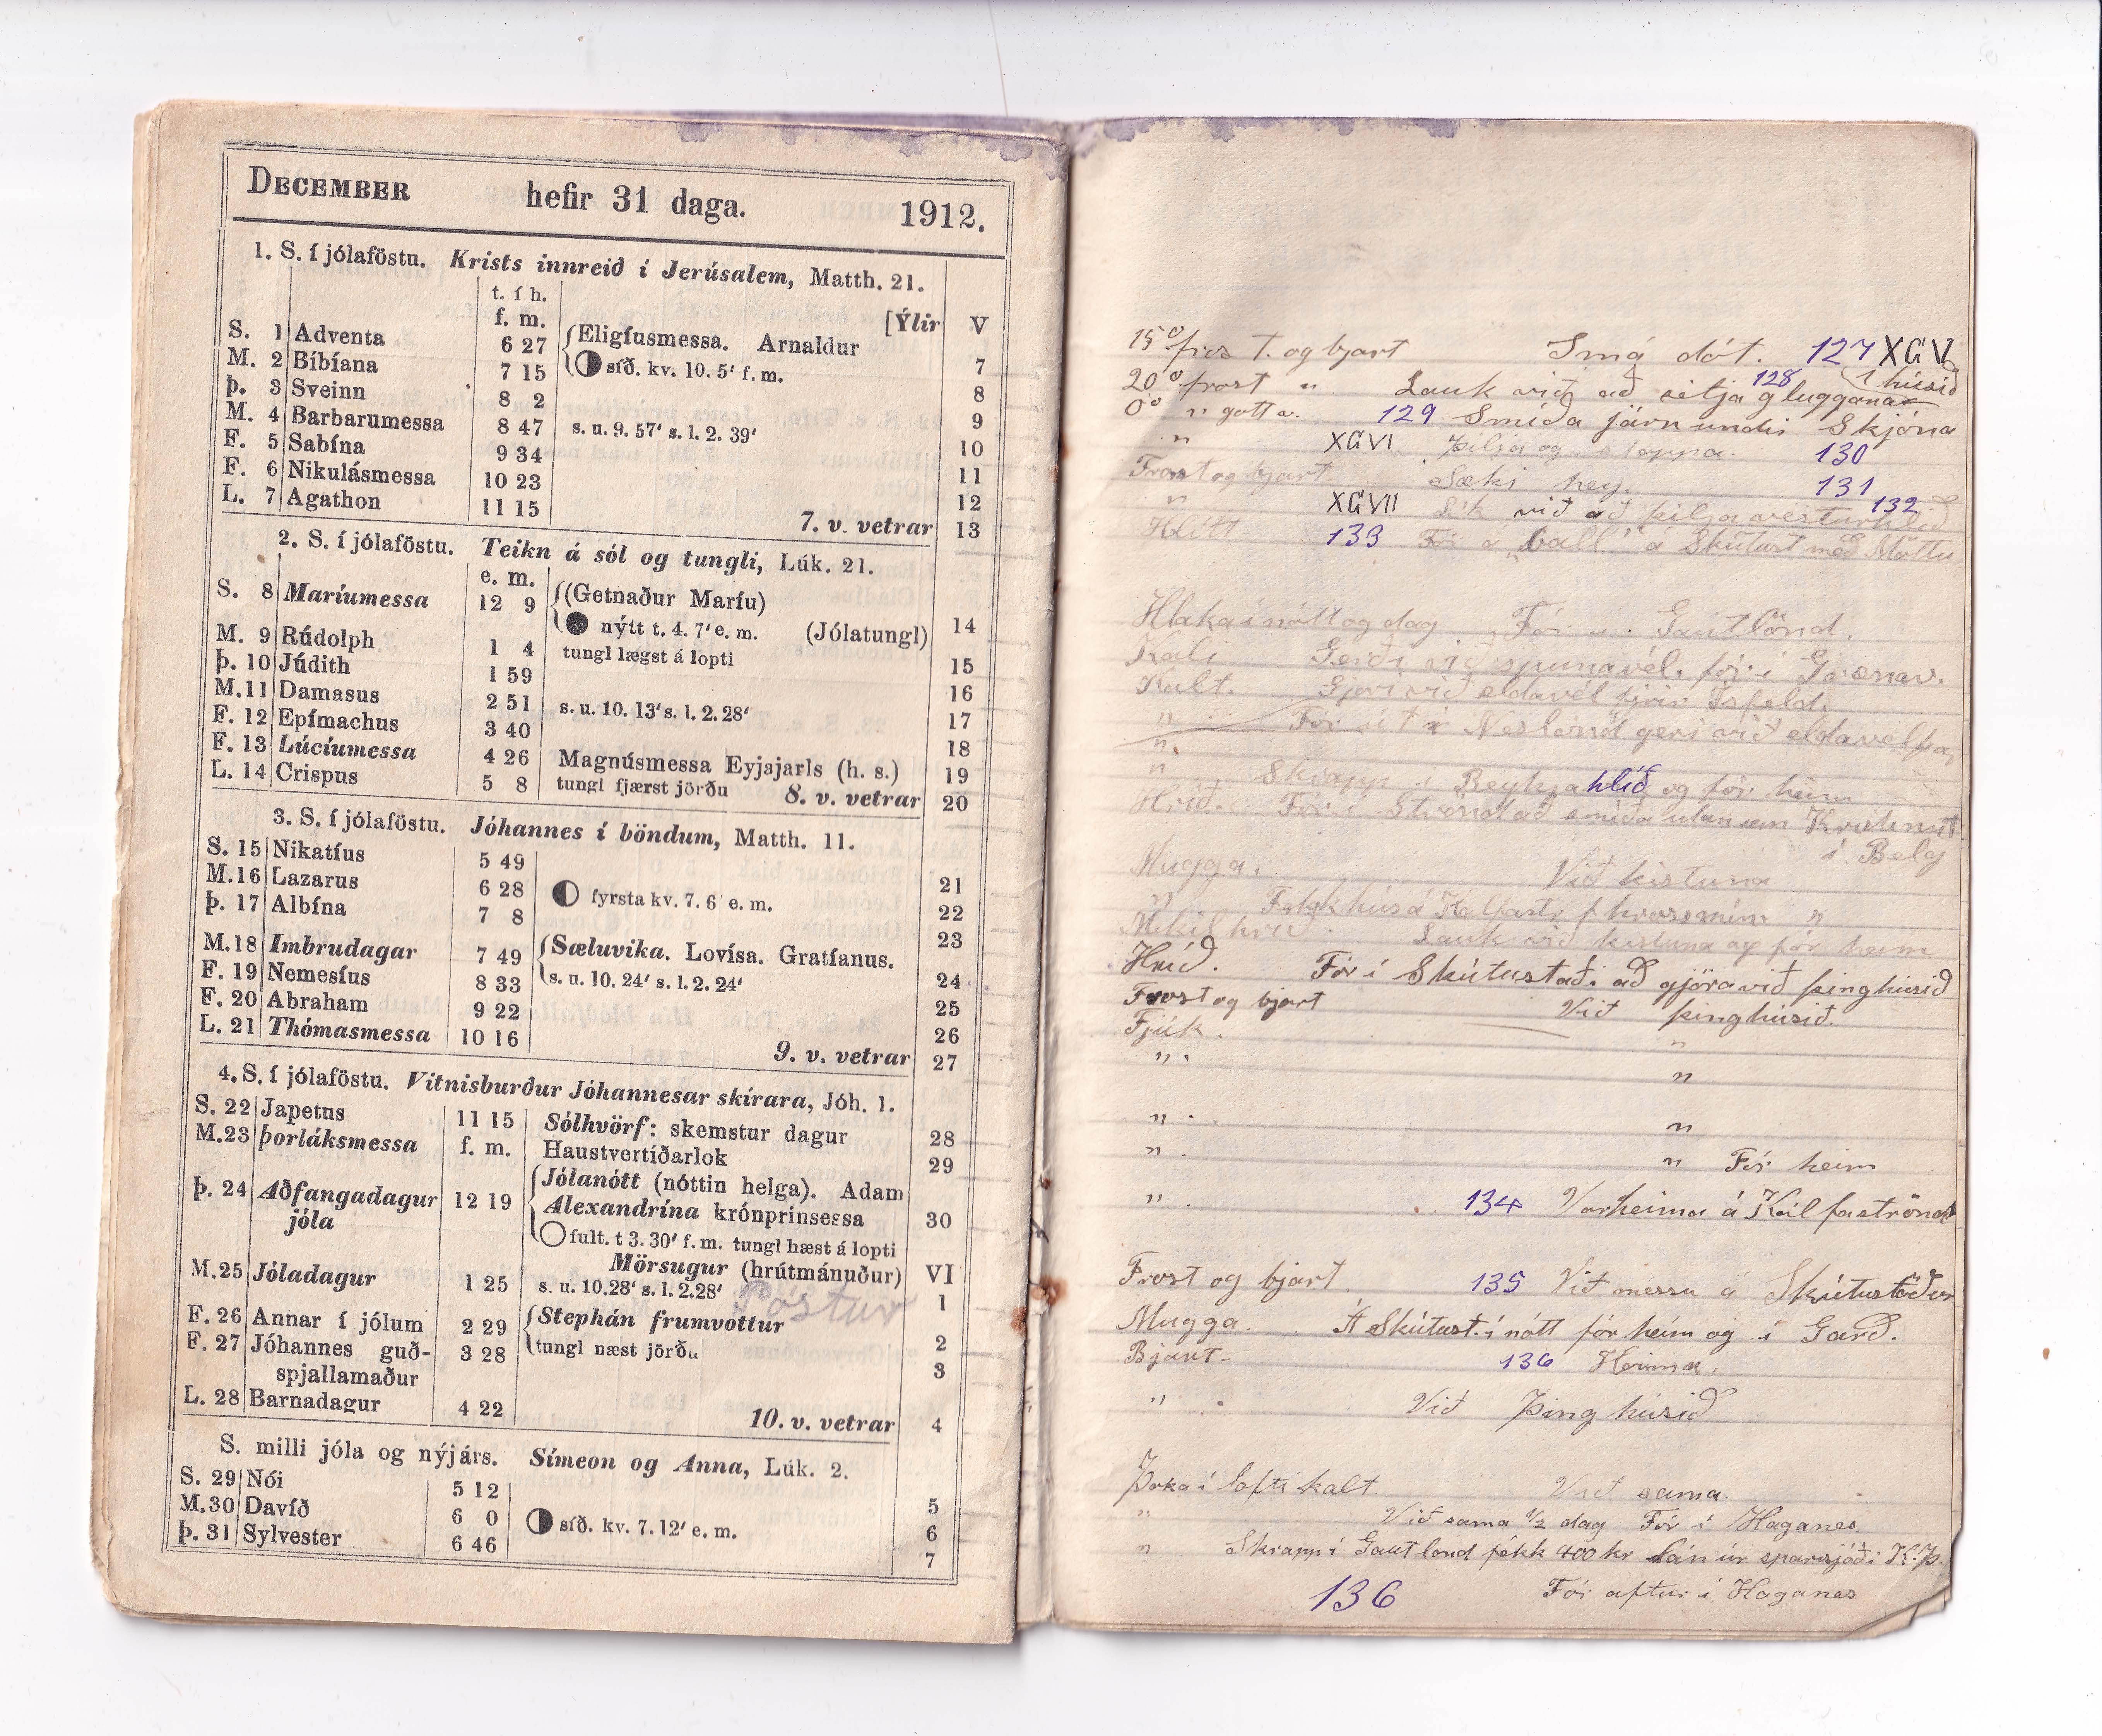 DECEMBER hefir 31 daga. 1912.
1. S. í jólaföstu. Krists innreið í Jerúsalem, Matth. 21.
t. í h.
f. m. [Ýlir V
S. 1 Adventa 6 27 Eligíusmessa. Arnaldur
M. 2 Bíbíana 7 15 síð. kv. 10. 5' f. m. 7
Þ. 3 Sveinn 8 2 8
M. 4 Barbarumessa 8 47 s. u. 9. 57' s. l. 2. 39' 9
F. 5 Sabína 9 34 10
F. 6 Nikulásmessa 10 23 11
L. 7 Agathon 11 15 12
7. v. vetrar 13
2. S. í jólaföstu. Teikn á sól og tungli, Lúk. 21.
e. m.
S. 8 Maríumessa 12 9 (Getnaður Maríu)
nýtt t. 4. 7' e. m. (Jólatungl) 14
M. 9 Rúdolph 1 4 tungl lægst á lopti 15
Þ. 10 Júdith 1 59 16
M. 11 Damasus 2 51 s. u. 10. 13' s. l. 2. 28' 17
F. 12 Epímachus 3 40 18
F. 13 Lúcíumessa 4 26 Magnúsmessa Eyjajarls (h. s.) 19
L. 14 Crispus 5 8 tungl fjærst jörðu 8. v. vetrar 20
3. S. í jólaföstu. Jóhannes í böndum, Matth. 11.
S. 15 Nikatíus 5 49 21
M. 16 Lazarus 6 28 fyrsta kv. 7. 6' e. m. 22
Þ. 17 Albína 7 8 23
M. 18 Imbrudagar 7 49 Sæluvika. Lovísa. Gratíanus. 24
F. 19 Nemesíus 8 33 s. u. 10. 24' s. l. 2. 24' 25
F. 20 Abraham 9 22 26
L. 21 Thómasmessa 10 16 9. v. vetrar 27
4. S. í jólaföstu. Vitnisburður Jóhannesar skírara, Jóh. 1.
S. 22 Japetus 11 15 Sólhvörf: skemstur dagur 28
M. 23 Þorláksmessa f. m. Haustvertíðarlok 29
Þ. 24 Aðfangadagur jóla 12 19 Jólanótt (nóttin helga). Adam
Alexandrína krónprinsessa 30
fult. t 3. 30' f. m. tungl hæst á lopti
Mörsugur (hrútmánuður) VI
M. 25 Jóladagur 1 25 s. u. 10.28' s. l. 2.28' Póstur 1
F. 26 Annar í jólum 2 29 Stephán frumvottur 2
F. 27 Jóhannes guð- 3 28 tungl næst jörðu 3
spjallamaður
L. 28 Barnadagur 4 22 10. v. vetrar 4
S. milli jóla og nýjárs. Símeon og Anna, Lúk. 2.
S. 29 Nói 5 12 5
M. 30 Davíð 6 0 síð. kv. 7. 12' e. m. 6
Þ. 31 Sylvester 6 46 7
15° frost og bjart Smá dót. 127 XCV
20° frost " Lauk við að setja 128 gluggana í húsið
0° " gott v. 129 Smíða járn undir Skjóna
" XCVI Þilja og stoppa. 130
Frost og bjart. Sæki hey. 131
" XCVII við að þilja vesturhlið 132
133 Fór á „ball" á Skútust með Möttu
Hláka í nótt og dag Fór í Gautlönd.
Kali Gerði við spunavél. fór í Grænav.
Kalt. Gjöri við eldavél fyrir Ísfeld.
" Fór út í Neslönd geri við eldavél þa
"
" Skrapp í Reykjahlíð og fór heim
Hríð. Fór í Strönd að smíða utanum Kristínu
í Belg
Mugga. Við kistuna
" á Kálfastr f "
Mikil hríð. Lauk við kistuna og fór heim
Hríð. Fór í Skútustaði að gjöra við þinghúsið
Frost og bjart Við þinghúsið.
Fjúk. "
" "
" "
" " Fór heim
" 134 Var heima á Kálfaströnd
Frost og bjart. 135 Við messu á Skútustöðum
Mugga. Á Skútust. í nótt fór heim og í Garð.
Bjart. 136 Heima.
" Við Þinghúsið
Þoka í lofti kalt. Við sama.
" Við sama ½ dag Fór í Haganes
" Skrapp í Gautlönd fékk 400 kr lán úr sparisjóði K.Þ.
136 Fór aftur í Haganes